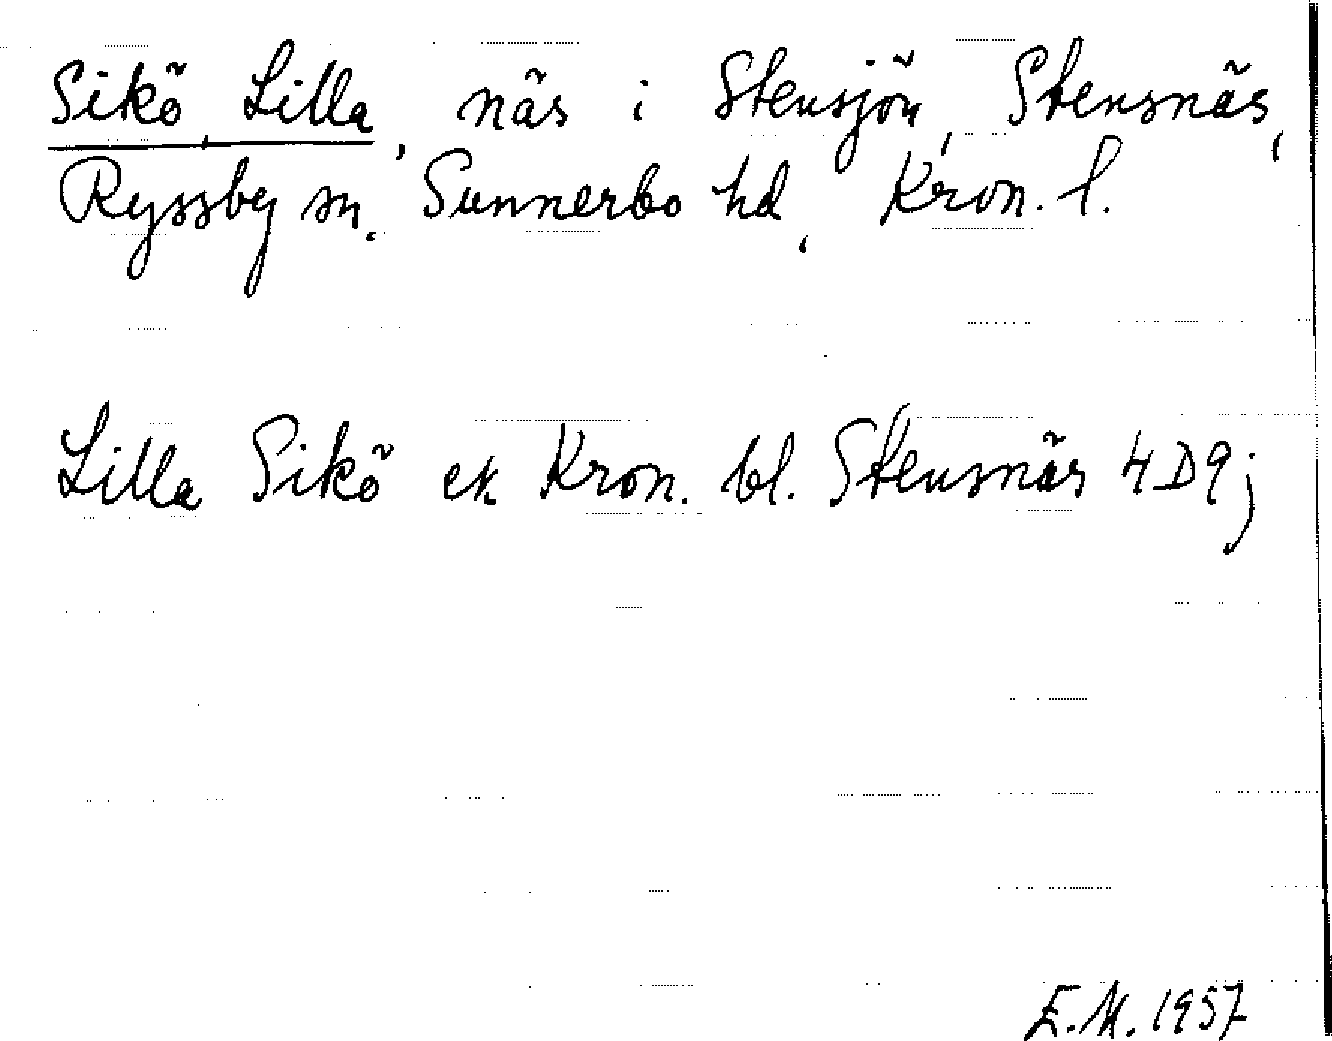 Sikö, Lilla, näs i Stensjön, Stensnäs,
Ryssby sn. Sunnerbo hd, Kron. l.
Lilla Sikö ek Kron. bl. Stensnäs 4D9j
E.M. 1957